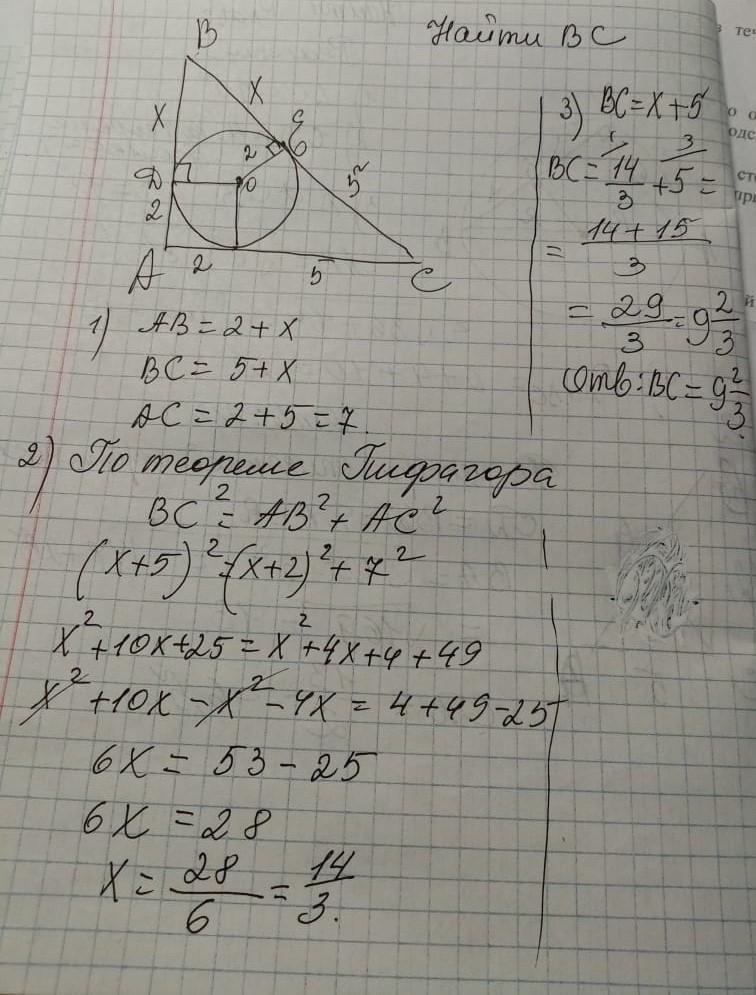 Найти BC
B
X
X
E
2
D
O
5
2
A
2
5
C
1) AB = 2 + x
BC = 5 + x
AC = 2 + 5 = 7.
2) По теореме Пифагора
BC² = AB² + AC²
(x+5)² = (x+2)² + 7²
x² + 10x + 25 = x² + 4x + 4 + 49
x² + 10x - x² - 4x = 4 + 49 - 25
6x = 53 - 25
6x = 28
x = 28/6 = 14/3.
3) BC = x + 5
BC = 14/3 + 5 =
= 14 + 15/3
= 29/3 = 9 2/3
Отв: BC = 9 2/3.